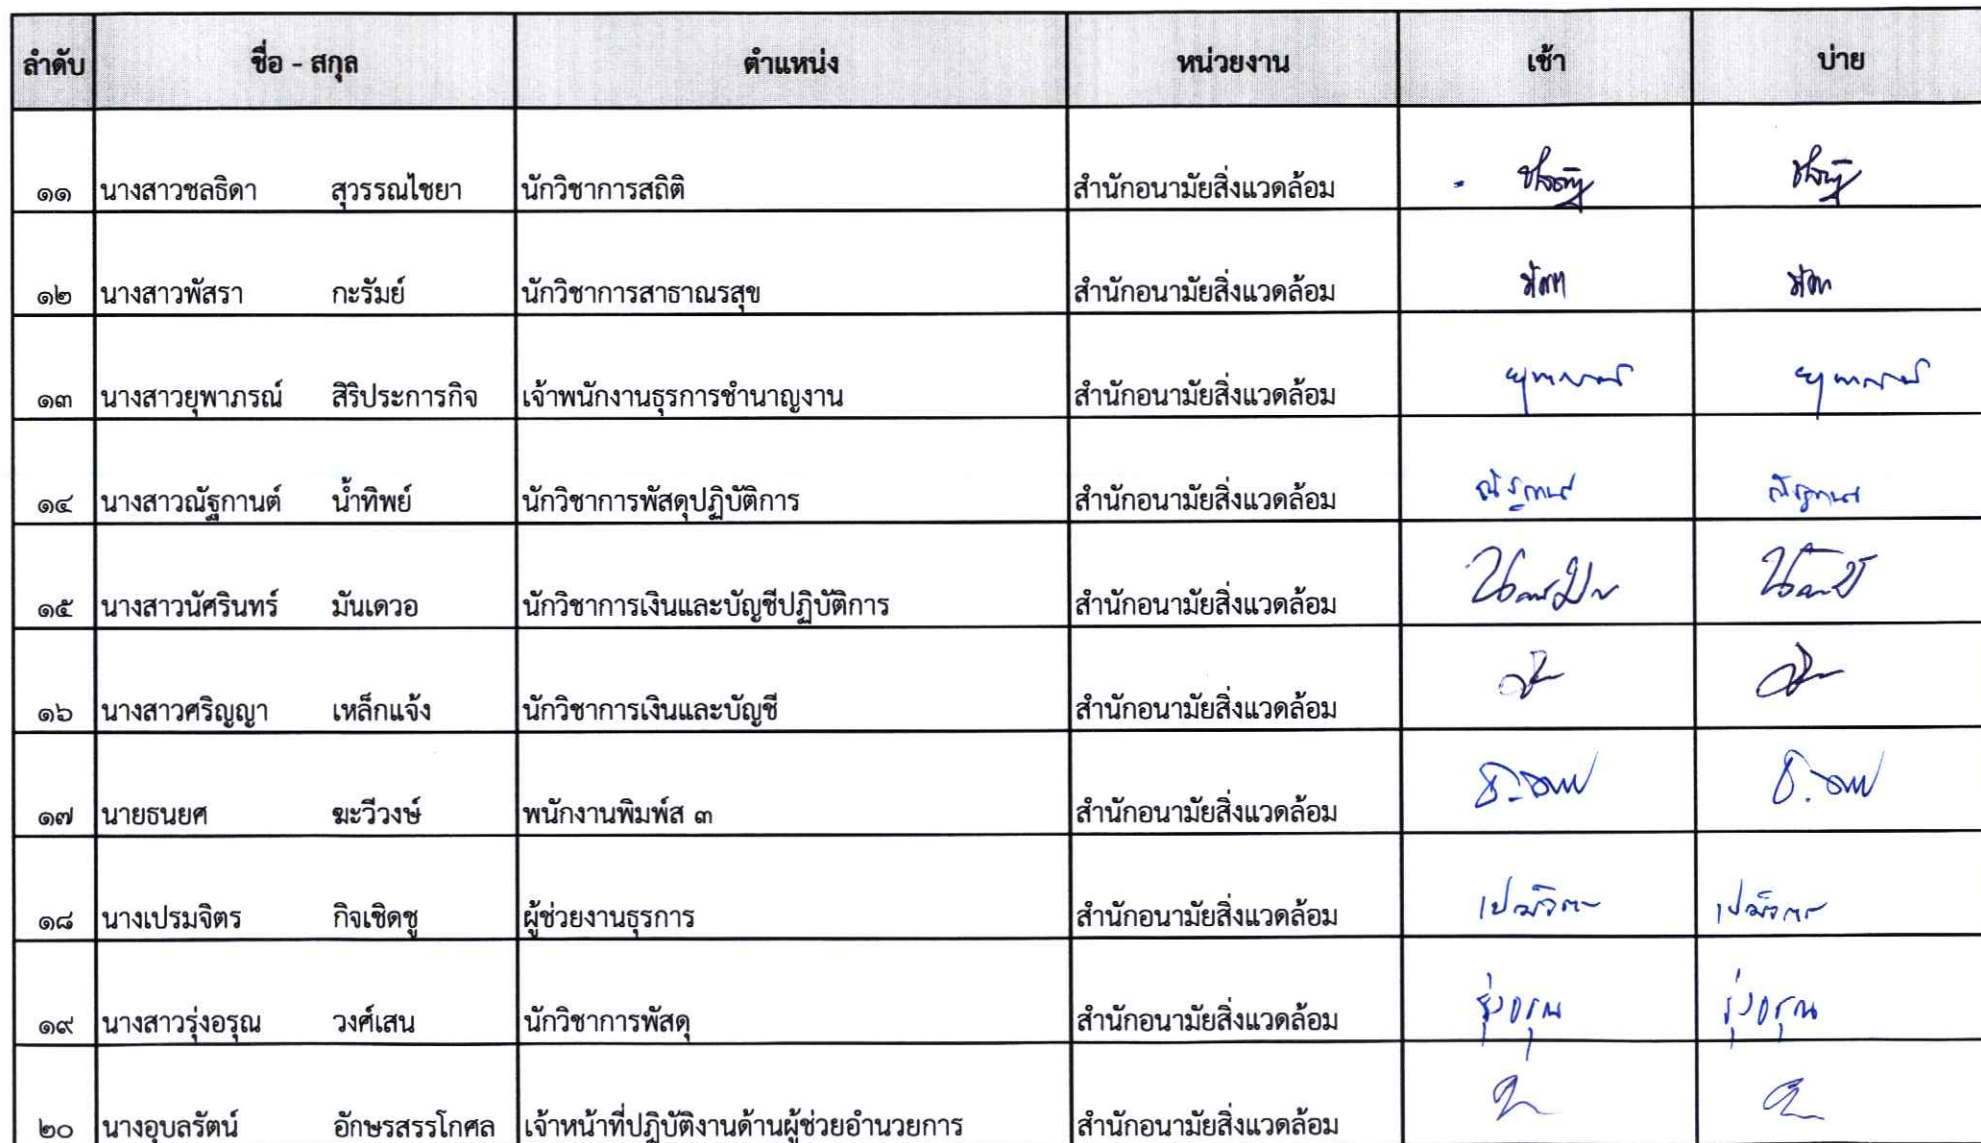 ลำดับ ชื่อ - สกุล ตำแหน่ง หน่วยงาน เช้า บ่าย
๑๑ นางสาวชลธิดา สุวรรณไชยา นักวิชาการสถิติ สำนักอนามัยสิ่งแวดล้อม
๑๒ นางสาวพัสรา กะรัมย์ นักวิชาการสาธาณรสุข สำนักอนามัยสิ่งแวดล้อม
๑๓ นางสาวยุพาภรณ์ สิริประการกิจ เจ้าพนักงานธุรการชำนาญงาน สำนักอนามัยสิ่งแวดล้อม ยุพาภรณ์ ยุพาภรณ์
๑๔ นางสาวณัฐกานต์ น้ำทิพย์ นักวิชาการพัสดุปฏิบัติการ สำนักอนามัยสิ่งแวดล้อม ณัฐกานต์ ณัฐกานต์
๑๕ นางสาวนัศรินทร์ มันเดวอ นักวิชาการเงินและบัญชีปฏิบัติการ สำนักอนามัยสิ่งแวดล้อม
๑๖ นางสาวศริญญา เหล็กแจ้ง นักวิชาการเงินและบัญชี สำนักอนามัยสิ่งแวดล้อม
๑๗ นายธนยศ ฆะวีวงษ์ พนักงานพิมพ์ส ๓ สำนักอนามัยสิ่งแวดล้อม
๑๘ นางเปรมจิตร กิจเชิดชู ผู้ช่วยงานธุรการ สำนักอนามัยสิ่งแวดล้อม เปรมจิตร เปรมจิตร
๑๙ นางสาวรุ่งอรุณ วงศ์เสน นักวิชาการพัสดุ สำนักอนามัยสิ่งแวดล้อม รุ่งอรุณ รุ่งอรุณ
๒๐ นางอุบลรัตน์ อักษรสรรโกศล เจ้าหน้าที่ปฏิบัติงานด้านผู้ช่วยอำนวยการ สำนักอนามัยสิ่งแวดล้อม